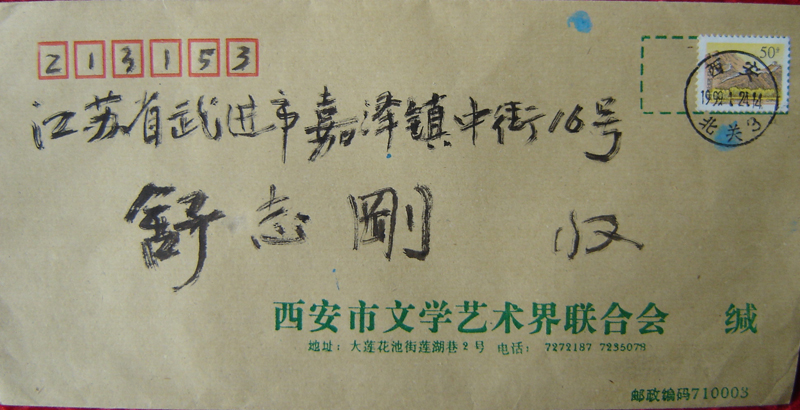 213153
50分
西安
1999.1.24.14
北关3
江苏省武进市嘉泽镇中街16号
舒志刚 收
西安市文学艺术界联合会 缄
地址：大莲花池街莲湖巷2号 电话：7272187 7235078
邮政编码710003